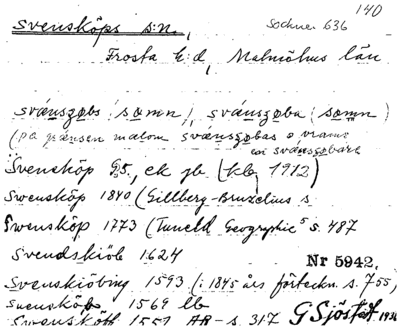 140
Svensköps s:n., Sockne. 636
Frosta h:d, Malmöhus län
svánszøbs (sømn), svánszøba (sømn)
(på gränsen mellom svánszøbas o
en svánszøbare
Svensköp G5, ek jb. (kb. 1912)
Svensköp 1840 (Gillberg-Bruzelius s
Swensköp 1773 (Tuneld Geographie⁵ s. 487
Svendskiöb 1624
Nr 5942
Svenskiöbing 1593 (: 1845 års förteckn. s. 755,
Svensköb 1569 lb
1551 AR- s. 317 G Sjöstedt 1932